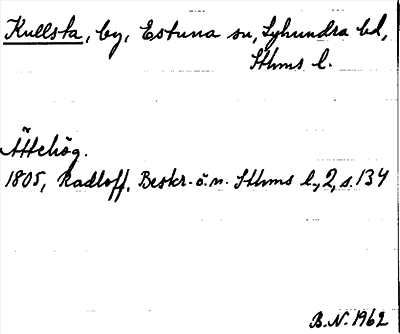 Kullsta, by, Estuna sn, Lyhundra hd,
Sthms l.
Ättehög.
1805, Radloff, Beskr. ö. n. Sthms l., 2, s. 134
B.N. 1962